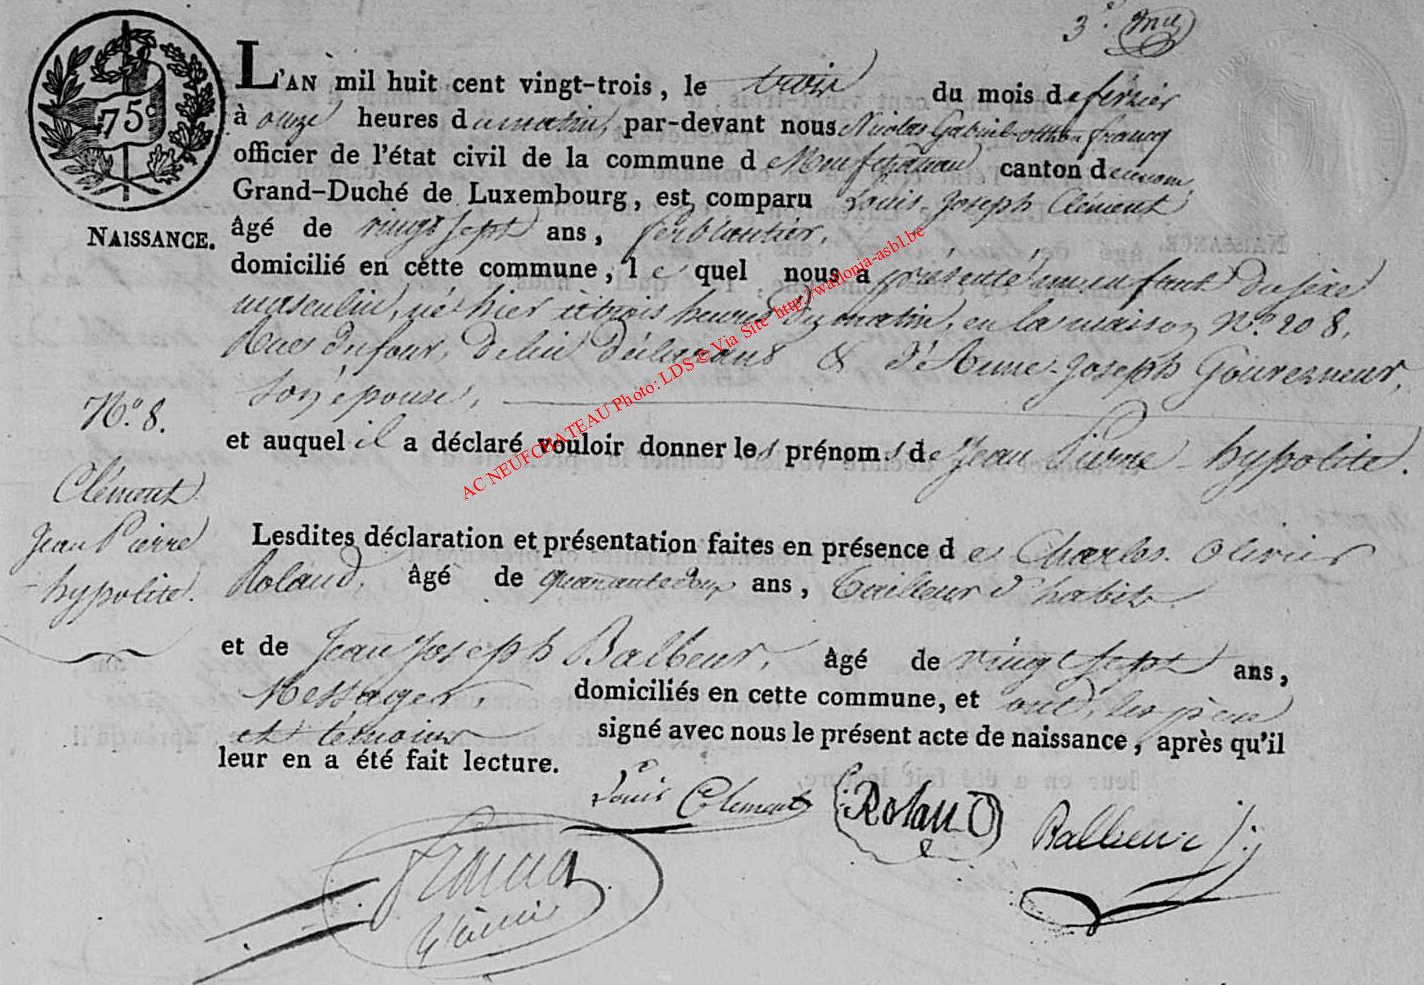 3.e
75c
L'AN mil huit cent vingt-trois, le trois du mois de février
à onze heures du matin, par-devant nous Nicolas Gabriel francq
officier de l'état civil de la commune de Neufchâteau canton du nom,
Grand-Duché de Luxembourg, est comparu Louis-Joseph Clément
NAISSANCE.
âgé de vingt sept ans, ferblantier,
domicilié en cette commune, le quel nous a présenté un enfant du sexe
masculin, né hier à trois heures du matin, en la maison N.o 208,
Rues du four, de lui déclarant & d'Anne-Joseph Gouverneur,
son épouse,
et auquel il a déclaré vouloir donner les prénoms de Jean Pierre hypolite.
N.o 8.
Clément
Jean Pierre
hypolite.
Lesdites déclaration et présentation faites en présence de Charles Olivier
Roland, âgé de quarante deux ans, Tailleur d'habits
et de Jean Joseph Balbeur, âgé de vingt sept ans,
Messager, domiciliés en cette commune, et ont, les père
et témoins signé avec nous le présent acte de naissance, après qu'il
leur en a été fait lecture.
Louis Clement
Roland
Balbeur J.
Francq
AC NEUFCHATEAU Photo: LDS © Via Site http://wallonia-asbl.be